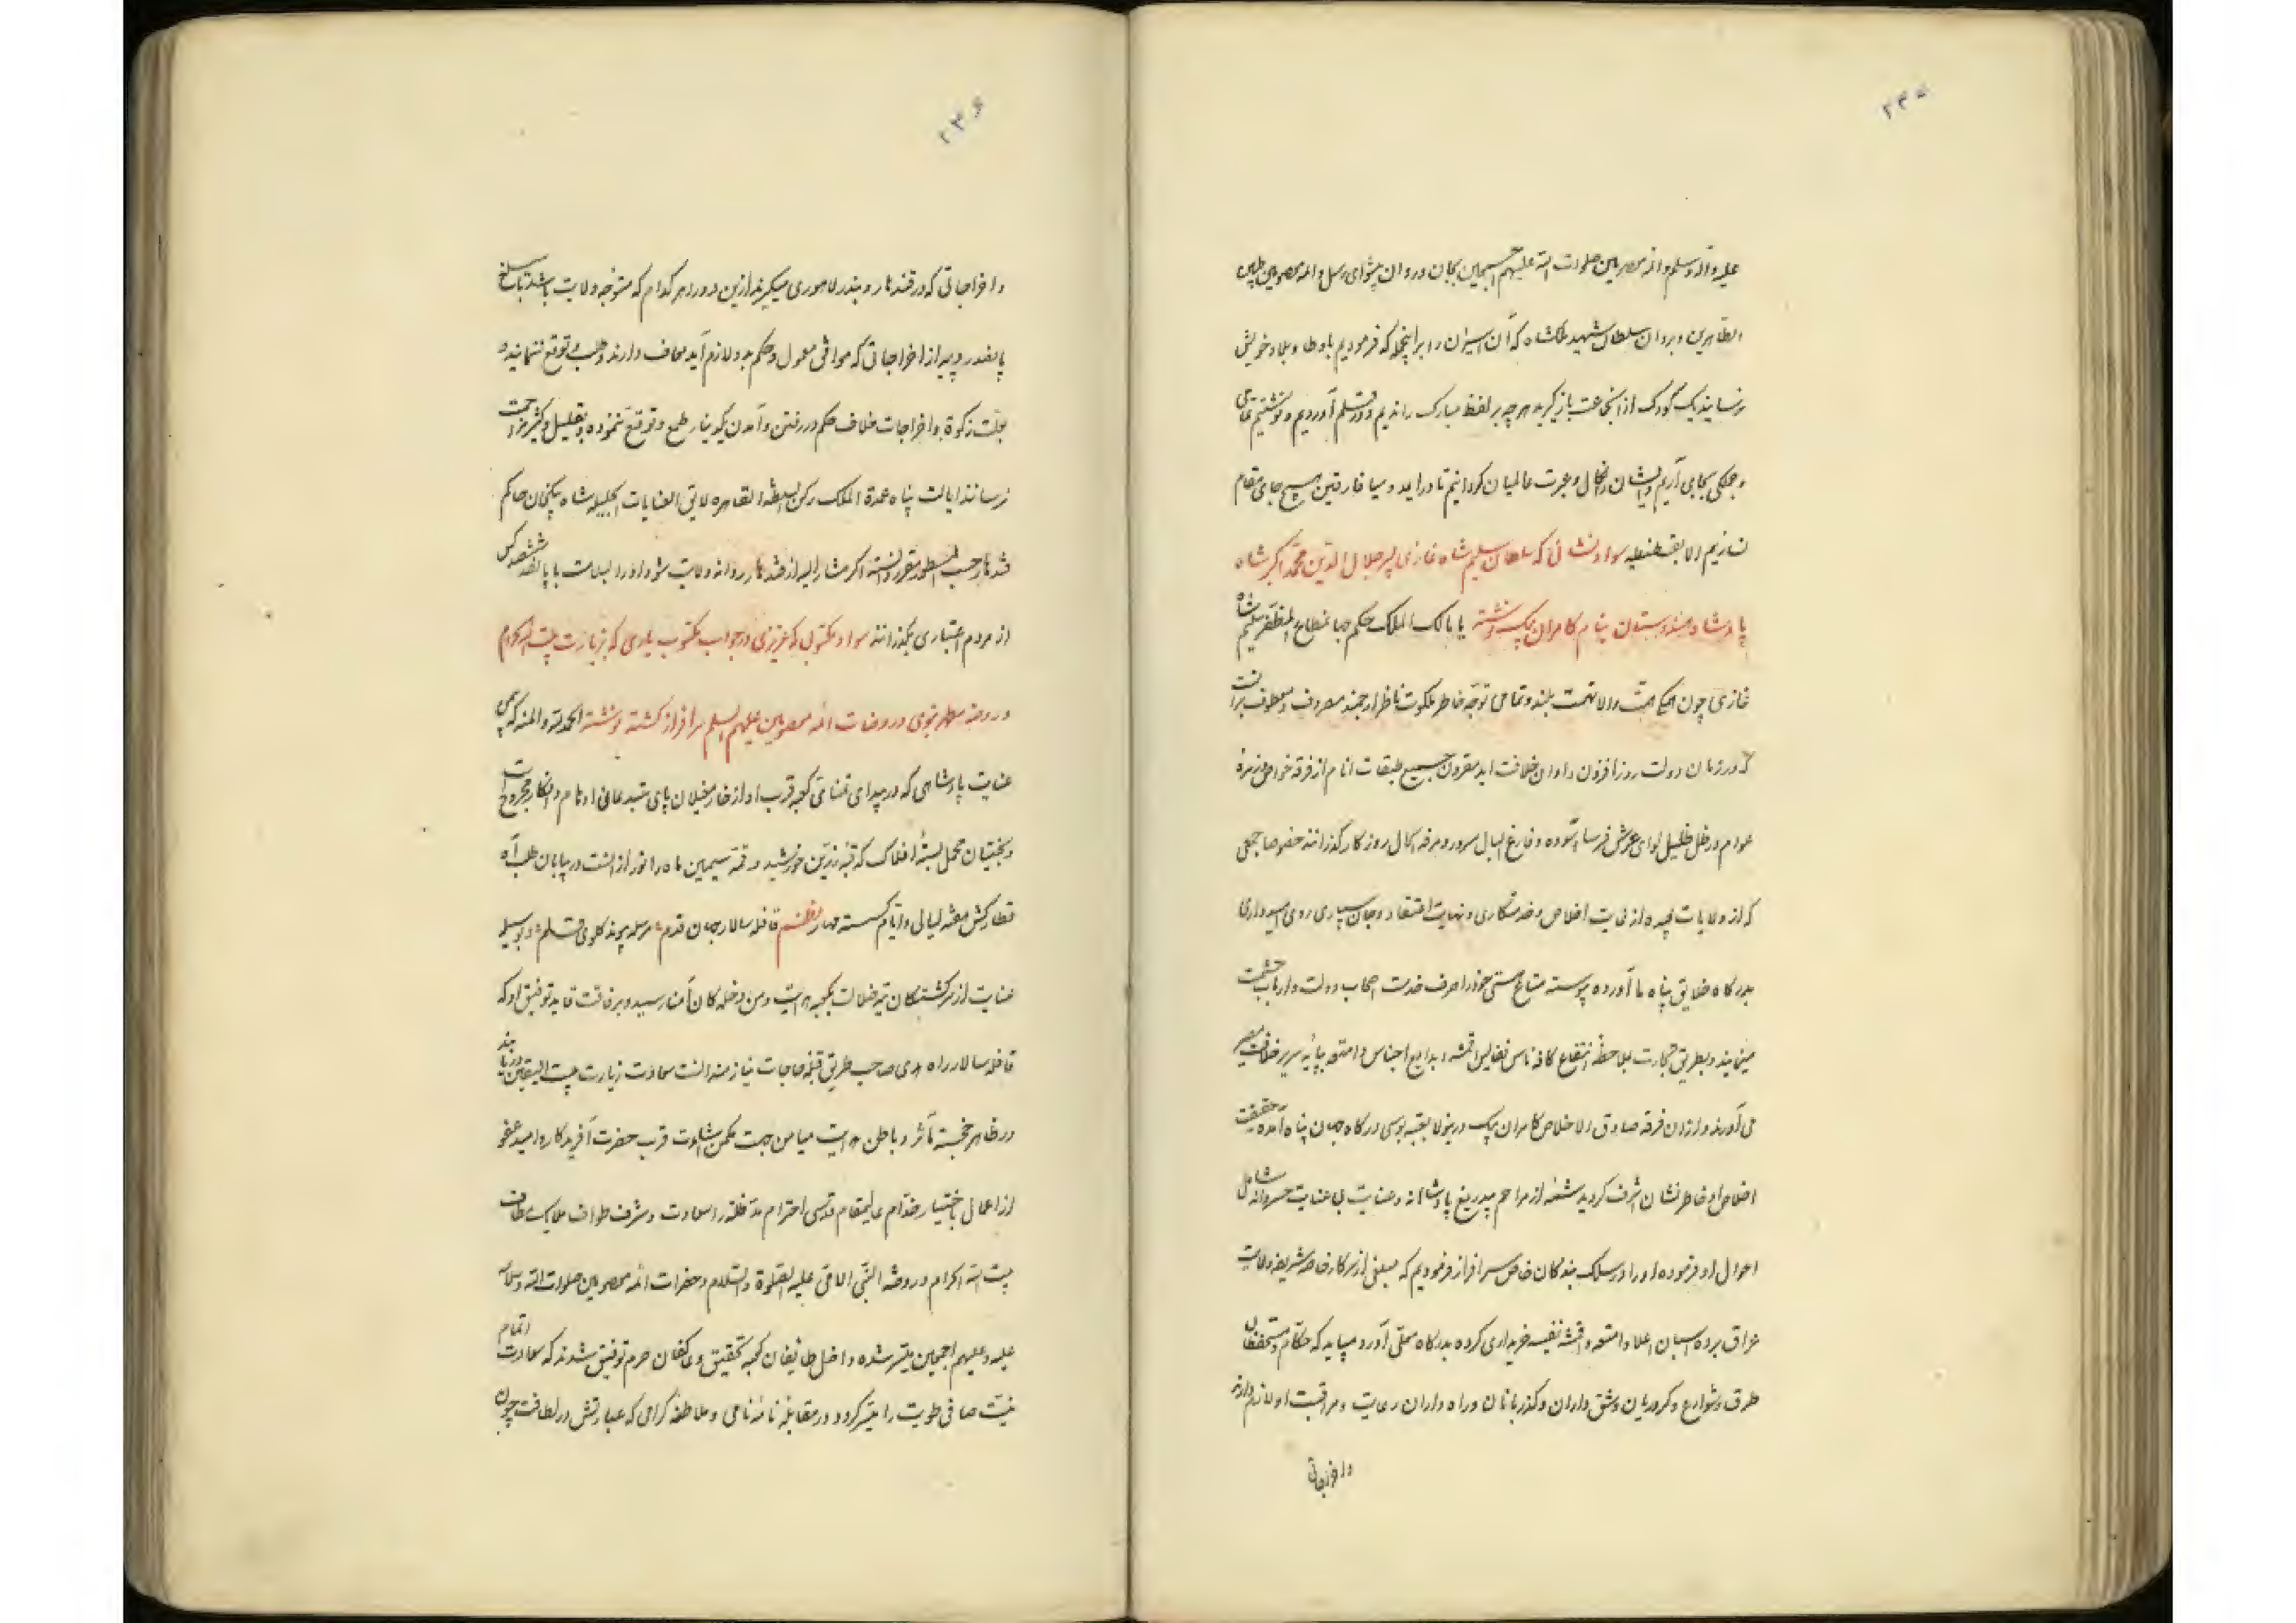 ۲۳۵
علیه و آله وسلم و ائمه معصومین صلوات الله علیهم اجمعین بجان و روان پیشوای رسل و ائمه معصومین طیبین
الطاهرین و بروان سلطان شهید ملکشاه که آن اسیران را بر اینجمله که فرمودیم با وطا و بلاد خویش
نرسانید یک کودک از آنجماعت باز گیرید هر چه بر لفظ مبارک راندیم و در قلم آوردیم و نوشتیم تمامی
و جملگی بجای آریم و ایشان را نکال و عبرت عالمیان گردانیم تا دراید و میافارقین هیچ جای مقام
نسازیم الا بقسطنطیه سواد نشانی که سلطان سلیم شاه غازی پسر جلال الدین محمد اکبر شاه
پادشاه هندوستان بنام کامران بیک نوشته یا مالک الملک حکم جهانمطاع ابوالمظفر سلیم شاه
غازی چون همگی همت والا نهمت بلند و تمامی توجه خاطر ملکوت ناظر ارجمند مصروف و معطوف برانست
که در زمان دولت روزافزون و اوان خلافت ابد مقرون جمیع طبقات انام از فرقه خواص و زمره
عوام در ظل ظلیل لوای عرش فرسا آسوده و فارغ البال مسرور و مرفه الحال روزگار گذرانند خصوصا جمعی
که از ولایات بعیده از نیت اخلاص و خدمتکاری و نهایت اعتقاد و جان سپاری روی امیدواری
بدرگاه خلایق پناه ما آورده پیوسته متاع هستی خود را صرف خدمت اصحاب دولت و ارباب حشمت
مینمایند و بطریق تجارت بملاحظه انتفاع کافه ناس نفایس اقمشه و بدایع اجناس و امتعه بپایه سریر خلافت مصیر
می آورند و از آن فرقه صادق الاخلاص کامران بیک درینولا بعتبه بوسی درگاه جهان پناه آمده حقیقت
اخلاص او خاطرنشان اشرف گردید شمه از مراحم بیدریغ پادشاهانه و عنایت بی عنایت خسروانه شامل
احوال او فرموده او را در سلک بندگان خاص سرافراز فرمودیم که مبلغی از سرکار خاصه شریفه بولایت
عراق برده اسبان اعلا و امتعه و اقمشه نفیسه خریداری کرده بدرگاه معلی آورد میباید که حکام و مستحفظان
طرق و شوارع و کروریان و شق داران و گذربانان و راه داران رعایت و مراقبت او لازم دانند
و اخراجاتی
۲۳۶
و اخراجاتی که در قندهار و بندر لاهوری میگیرند ازین دو راه هر کدام که متوجه ولایت باشد تا مبلغ
پانصد روپیه از اخراجاتی که موافق معمول و حکم بدو لازم آید معاف دارند و طلب و توقع ننمایند و
بعلت زکوة و اخراجات خلاف حکم در رفتن و آمدن یکدینار طمع و توقع ننموده بقلیل و کثیر مزاحمت
نرسانند ایالت پناه عمدة الملک رکن السلطنة القاهره لایق العنایات الجلیله شاه بیکخان حاکم
قندهار حسب المسطور مقرر دانسته اگر مشارالیه از قندهار روانه ولایت شود او را بسلامت با پانصد ششصد کس
از مردم اعتباری بگذرانند سواد مکتوبی که عزیزی در جواب مکتوب یاری که بزیارت بیت الله الحرام
و روضه مطهر نبوی و روضات ائمه معصومین علیهم السلم سرافراز گشته نوشته الحمدلله و المنه که بیمن
عنایت پادشاهی که در بیدای تمنای کعبه قرب او از خار مغیلان پای متبدعانی اوهام و افکار مجروح است
و بختیان محمل بسته افلاک که قبه زرین خورشید و قمه سیمین ماه و انور از انست در بیابان طلب آه
قطارکش هفته لیالی و ایام گسسته مهار نظم قافله سالار جهان قدم مرسله پیوند گلوی قلم و بوسیله
عنایت از سرگشتگان تیه ضلالت بکعبه هدایت و من دخله کان آمنا رسید و برفاقت قاید توفیق او که
قافله سالار راه هدی صاحب طریق قبله حاجات نیازمندانست سعادت زیارت بیت الیقین دریابند
در ظاهر خجسته مآثر و باطن هدایت میامن جهت تمکن بشاهدت قرب حضرت آفریدگار و امید عفو
از اعمال باختیار خدام عالیمقام قدسی احترام مد ظله را سعادت و شرف طواف ملایک مطاف
بیت الله الحرام و روضه النبی الامی علیه الصلوة والسلام و حضرات ائمه معصومین صلوات الله وسلامه
علیه و علیهم اجمعین میسر شده داخل طایفان کعبه تحقیق و عاکفان حرم توفیق شدند که سعادت اتمام
نیت صافی طویت را میسر کرد و در مقابله نامه نامی و ملاطفه گرامی که عبارتش در لطافت چون